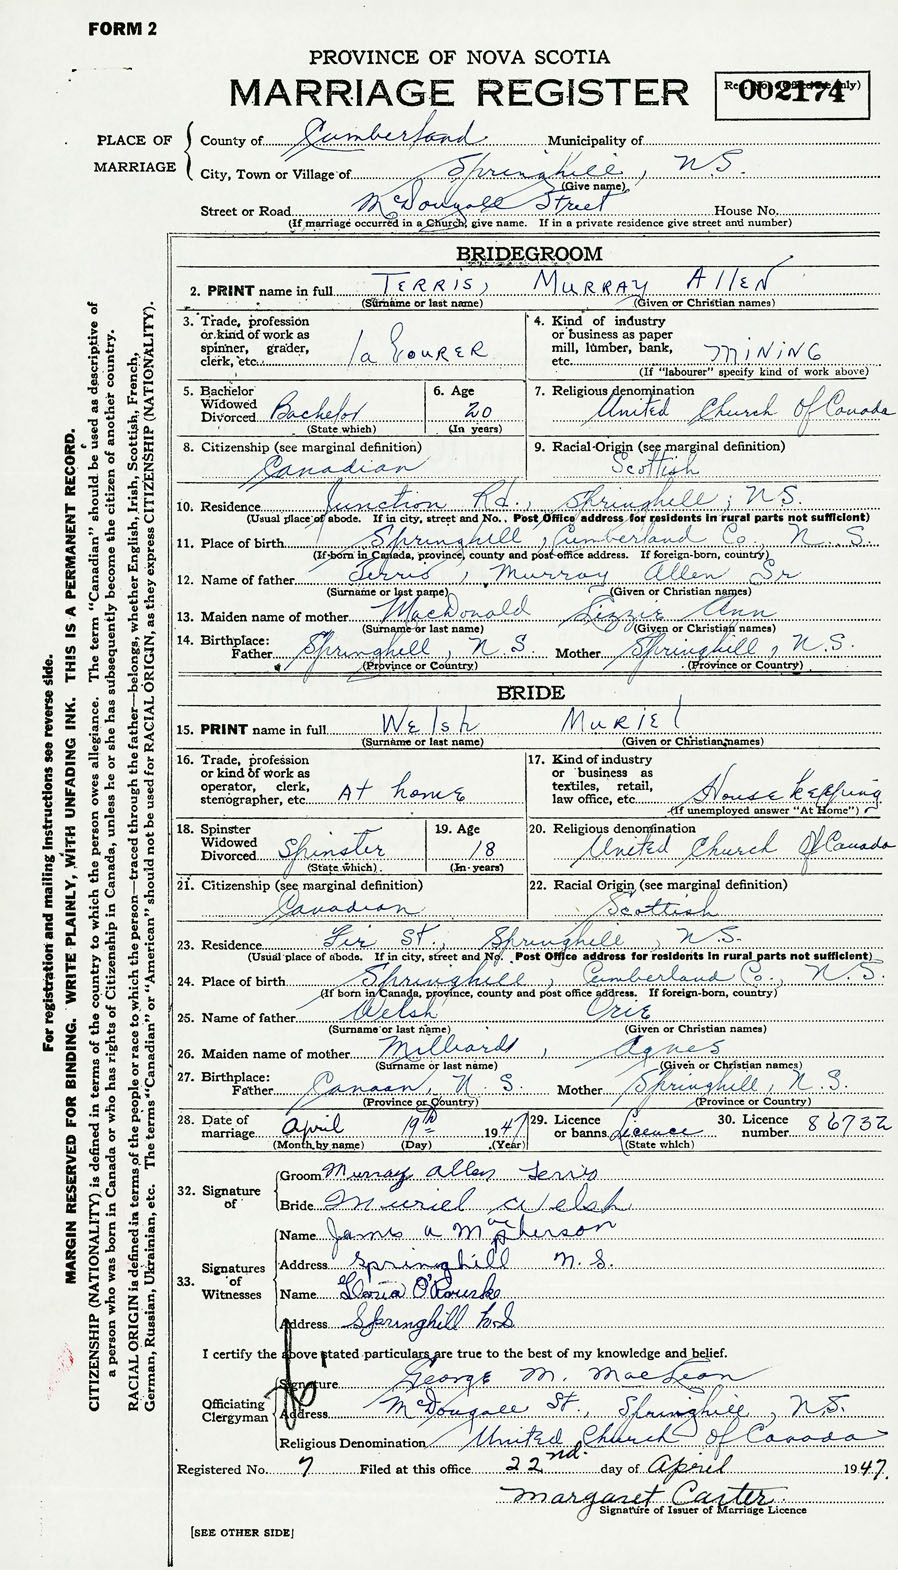 FORM 2
PROVINCE OF NOVA SCOTIA
MARRIAGE REGISTER
002174
PLACE OF MARRIAGE
County of Cumberland Municipality of
City, Town or Village of Springhill, N.S.
(Give name)
Street or Road McDougall Street House No.
(If marriage occurred in a Church, give name. If in a private residence give street and number)
BRIDEGROOM
2. PRINT name in full TERRIS, MURRAY AllEN
(Surname or last name) (Given or Christian names)
3. Trade, profession or kind of work as spinner, grader, clerk, etc. labourer
4. Kind of industry or business as paper mill, lumber, bank, etc. MINING
(If "labourer" specify kind of work above)
5. Bachelor Widowed Divorced Bachelor
(State which)
6. Age 20
(In years)
7. Religious denomination United Church Of Canada
8. Citizenship (see marginal definition)
Canadian
9. Racial Origin (see marginal definition)
Scottish
10. Residence Junction Rd., Springhill, N.S.
(Usual place of abode. If in city, street and No., Post Office address for residents in rural parts not sufficient)
11. Place of birth Springhill, Cumberland Co., N.S.
(If born in Canada, province, county and post office address. If foreign-born, country)
12. Name of father Terris, Murray Allen Sr
(Surname or last name) (Given or Christian names)
13. Maiden name of mother MacDonald Lizzie Ann
(Surname or last name) (Given or Christian names)
14. Birthplace: Father Springhill, N.S. Mother Springhill, N.S.
(Province or Country) (Province or Country)
BRIDE
15. PRINT name in full Welsh Muriel
(Surname or last name) (Given or Christian names)
16. Trade, profession or kind of work as operator, clerk, stenographer, etc. At home
17. Kind of industry or business as textiles, retail, law office, etc. House keeping
(If unemployed answer "At Home")
18. Spinster Widowed Divorced Spinster
(State which)
19. Age 18
(In years)
20. Religious denomination United Church Of Canada
21. Citizenship (see marginal definition)
Canadian
22. Racial Origin (see marginal definition)
Scottish
23. Residence Fir St., Springhill, N.S.
(Usual place of abode. If in city, street and No. Post Office address for residents in rural parts not sufficient)
24. Place of birth Springhill, Cumberland Co., N.S.
(If born in Canada, province, county and post office address. If foreign-born, country)
25. Name of father Welsh Orie
(Surname or last name) (Given or Christian names)
26. Maiden name of mother Milliard, Agnes
(Surname or last name) (Given or Christian names)
27. Birthplace: Father Canaan, N.S. Mother Springhill, N.S.
(Province or Country) (Province or Country)
28. Date of marriage April 19th 1947
(Month by name) (Day) (Year)
29. Licence or banns Licence
(State which)
30. Licence number 86732
32. Signature of
Groom Murray Allen Terris
Bride Muriel Welsh
33. Signatures of Witnesses
Name James A MacPherson
Address Springhill N.S.
Name Gloria O'Rourke
Address Springhill N.S
I certify the above stated particulars are true to the best of my knowledge and belief.
Officiating Clergyman
Signature George M. MacLean
Address McDougall St., Springhill, N.S.
Religious Denomination United Church of Canada
Registered No. 7 Filed at this office 22nd. day of April 1947.
Margaret Carter
Signature of Issuer of Marriage Licence
[SEE OTHER SIDE]
For registration and mailing instructions see reverse side.
MARGIN RESERVED FOR BINDING. WRITE PLAINLY, WITH UNFADING INK. THIS IS A PERMANENT RECORD.
CITIZENSHIP (NATIONALITY) is defined in terms of the country to which the person owes allegiance. The term "Canadian" should be used as descriptive of
a person who was born in Canada or who has rights of Citizenship in Canada, unless he or she has subsequently become the citizen of another country.
RACIAL ORIGIN is defined in terms of the people or race to which the person—traced through the father—belongs, whether English, Irish, Scottish, French,
German, Russian, Ukrainian, etc. The terms "Canadian" or "American" should not be used for RACIAL ORIGIN, as they express CITIZENSHIP (NATIONALITY).